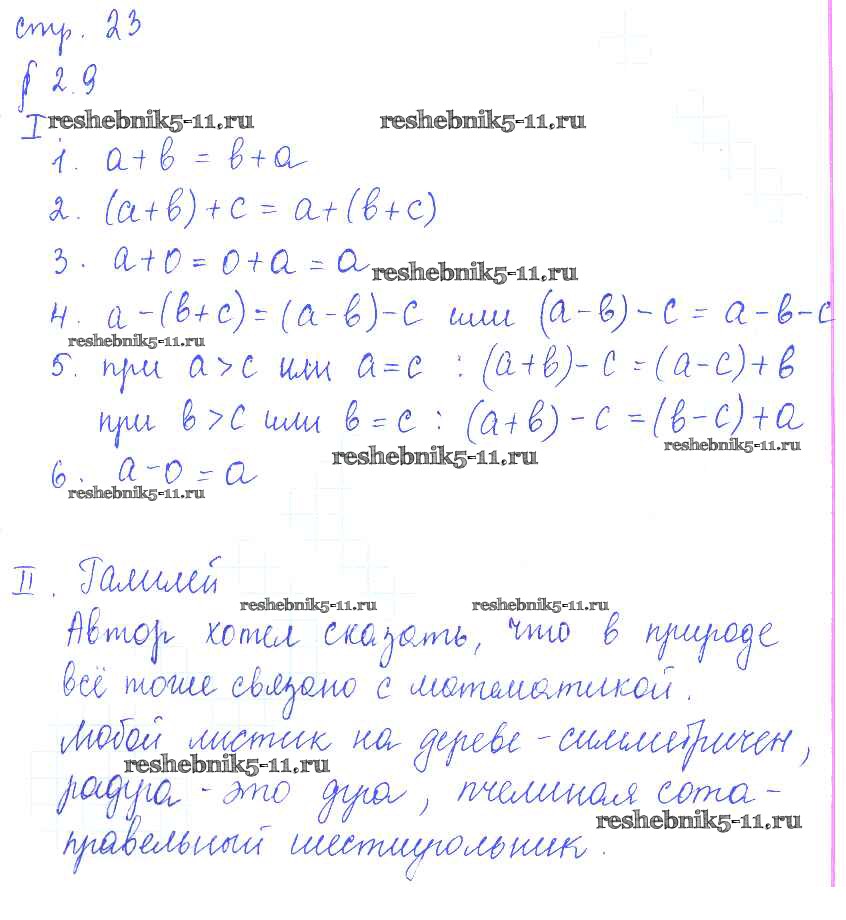 стр. 23
§ 2.9
I reshebnik5-11.ru reshebnik5-11.ru
1. а+в = в+а
2. (а+в)+с = а+(в+с)
3. а+0=0+а=а reshebnik5-11.ru
4. а-(в+с)=(а-в)-с или (а-в)-с = а-в-с
reshebnik5-11.ru
5. при а>с или а=с : (а+в)-с=(а-с)+в
при в>с или в=с : (а+в)-с=(в-с)+а
reshebnik5-11.ru reshebnik5-11.ru
6. а-0=а
reshebnik5-11.ru
II. Галилей
reshebnik5-11.ru reshebnik5-11.ru
Автор хотел сказать, что в природе
всё тоже связано с математикой.
Любой листик на дереве - симметричен,
reshebnik5-11.ru
радуга - это дуга, пчелиная сота -
reshebnik5-11.ru
правельный шестиугольник.